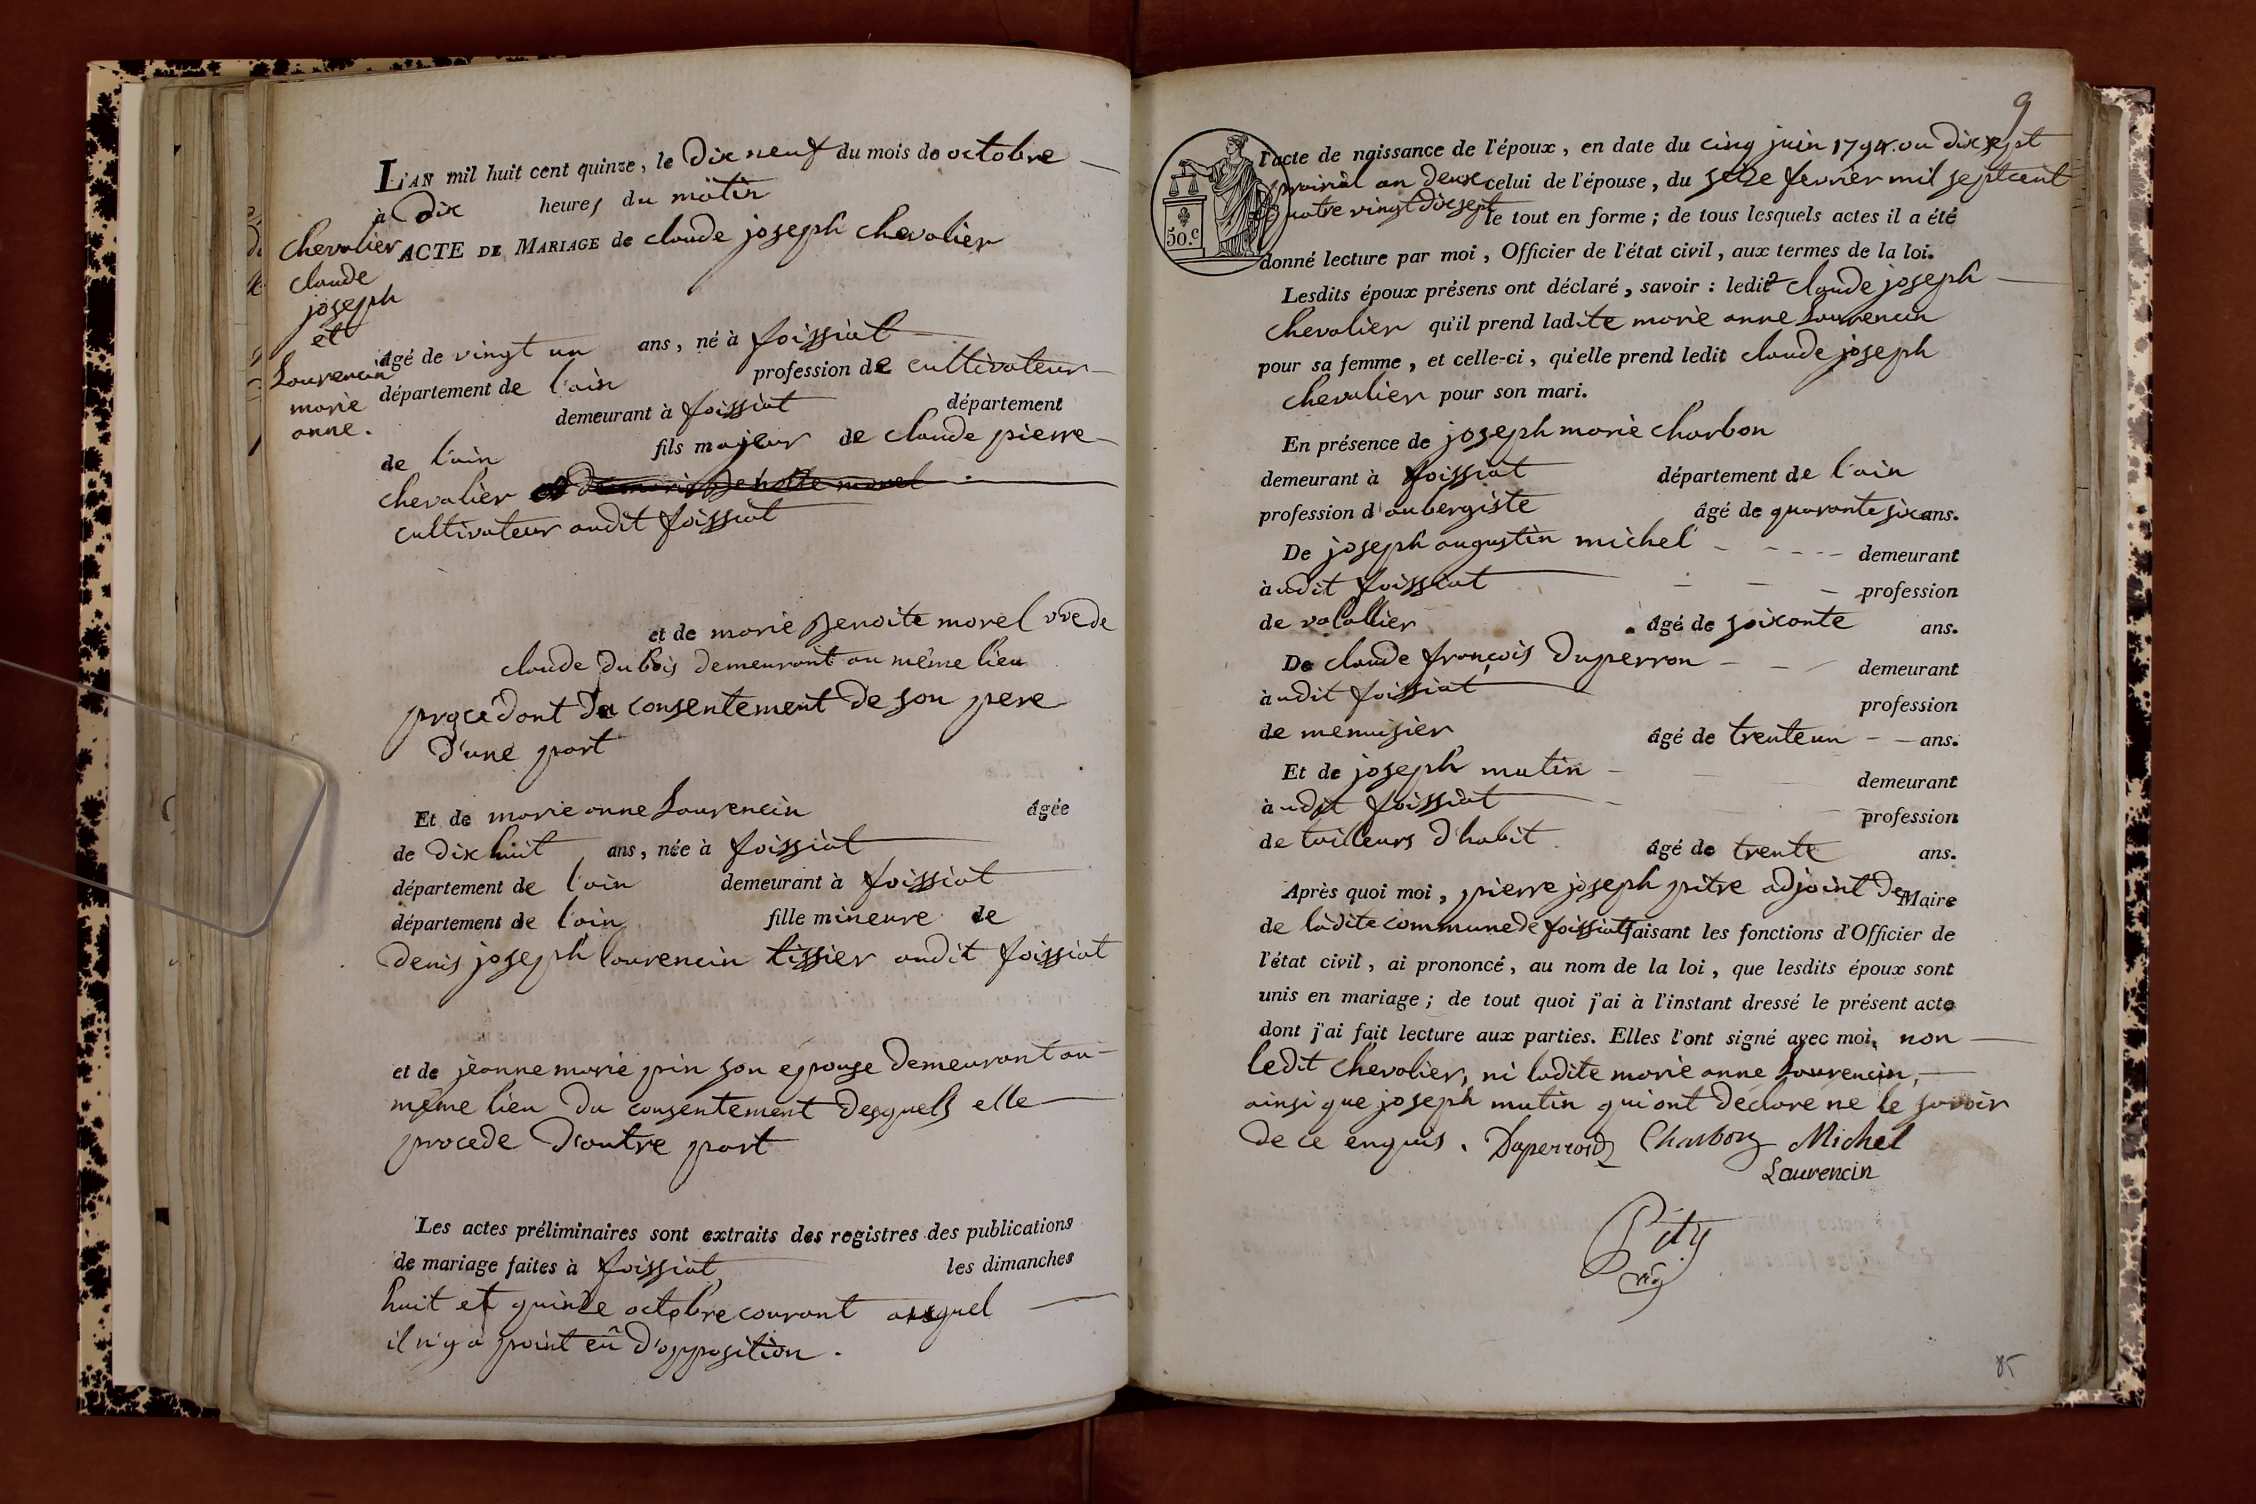 L'AN mil huit cent quinze, le Dix neuf du mois de octobre
à Dix heures du matin
ACTE DE MARIAGE de claude joseph chevalier
Chevalier
claude
joseph
et
Laurencin
marie
anne.
âgé de vingt un ans, né à foissiat
département de l'ain profession de cultivateur
demeurant à foissiat département
de l'ain fils majeur de claude pierre
chevalier et de marie Benoite morel
cultivateur audit foissiat
et de marie Benoite morel vve de
claude Dubois demeurant au même lieu
procedant du consentement de son pere
d'une part
Et de marie anne Laurencin âgée
de dix huit ans, née à foissiat
département de l'ain demeurant à foissiat
département de l'ain fille mineure de
denis joseph laurencin tissier audit foissiat
et de jeanne marie prin son epouse demeurant au
même lieu du consentement desquels elle
procede d'autre part
Les actes préliminaires sont extraits des registres des publications
de mariage faites à foissiat les dimanches
huit et quinze octobre courant auquel
il n'y a point eû d'opposition.
9
50.c
l'acte de naissance de l'époux, en date du cinq juin 1794. ou dix sept
prairial an deux celui de l'épouse, du seize fevrier mil sept cent
quatre vingt dix sept le tout en forme; de tous lesquels actes il a été
donné lecture par moi, Officier de l'état civil, aux termes de la loi.
Lesdits époux présens ont déclaré, savoir: ledit claude joseph
chevalier qu'il prend ladite marie anne Laurencin
pour sa femme, et celle-ci, qu'elle prend ledit claude joseph
chevalier pour son mari.
En présence de joseph marie charbon
demeurant à foissiat département de l'ain
profession d'aubergiste âgé de quarante six ans.
De joseph augustin michel demeurant
audit foissiat profession
de âgé de soixante ans.
De claude françois Duperron demeurant
audit foissiat profession
de menuisier âgé de trente un ans.
Et de joseph mutin demeurant
audit foissiat profession
de tailleurs d'habit âgé de trente ans.
Après quoi moi, pierre joseph pitre adjoint de Maire
de ladite commune de foissiat faisant les fonctions d'Officier de
l'état civil, ai prononcé, au nom de la loi, que lesdits époux sont
unis en mariage; de tout quoi j'ai à l'instant dressé le présent acte
dont j'ai fait lecture aux parties. Elles l'ont signé avec moi, non
ledit chevalier, ni ladite marie anne Laurencin,
ainsi que joseph mutin qui ont déclaré ne le savoir
de ce enquis. Duperron Charbon Michel
Laurencin
85